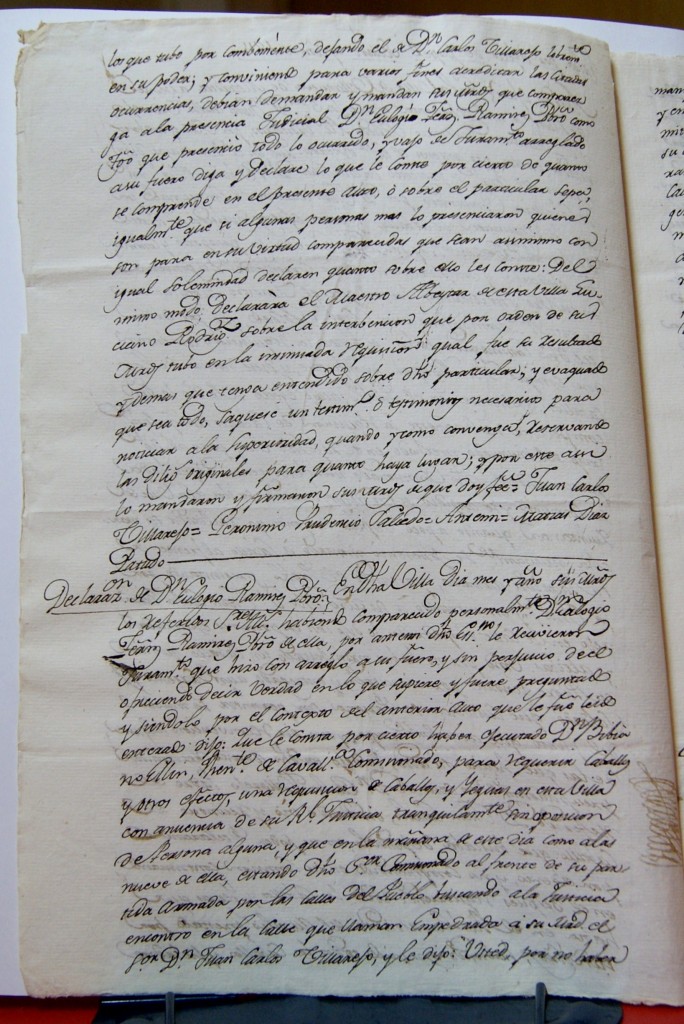 los que tubo por combeniente, dejando el de Dn. Carlos Villarejo
en su poder; y conviniendo para varios fines acreditar las citadas
ocurrencias, debian demandar y mandan sus mrds que comparez
ga a la presencia Judicial Dn. Eulogio Ramirez Pbro como
que presencio todo lo ocurrido, y vajo de Juramto arreglado
a su fuero diga y declare lo que le Conste por cierto de quanto
se comprende en el presente Auto, ò sobre el particular sepa,
igualmte que si algunas personas mas lo presenciaron quienes
son para en su virtud comparecidas que sean asimismo con
igual solemnidad declaren quanto sobre ello les Conste: Del
mismo modo declarara el Maestro Albeytar de esta Villa
Rodrigz sobre la interbencion que por orden de sus
mrds tubo en la qual fue su resultado
y demas que tenga entendido sobre dho particular; y evaquado
que sea todo, saquese un testimo ò testimonios necesarios para
noticiar a la Superioridad, quando y como convenga, reservando
las dilig originales para quanto haya lugar; y por este asi
lo mandaron y firmaron sus mrds de que doy fee = Juan Carlos
Villarejo = Geronimo Prudencio Salcedo = Antemi = Matias Diaz
Parado
Declaraon de Dn. Eulogio Ramirez Pbro En dha Villa dia mes y año sus mrds
los referidos habiendo comparecido personalmte Dn. Eulogio
Ramirez Pbro de ella, por antemi dho Esno le recivieron
Juramto que hizo con arreglo a su fuero, y sin perjuicio de el
ofreciendo decir verdad en lo que supiere y fuere preguntado
y siendolo por el contexto del anterior Auto que le fue leido
enterado dijo: Que le Consta por cierto haber ejecutado Dn. Bibia
no de Cavallra Comisionado, para requerir Caballos
y otros efectos, una requisicion de Caballos, y Yeguas en esta Villa
con anuencia de su Rl. Justicia tranquilamte sin oposicion
de Persona alguna, y que en la mañana de este dia como a las
nueve de ella, estando dho Sor Comisionado al frente de su par
tida armada por las calles del Pueblo buscando a la Justicia
encontro en la Calle que llaman Empedrada a su Mrd. el
Sor Dn. Juan Carlos Villarejo, y le dijo: Usted, por no haber